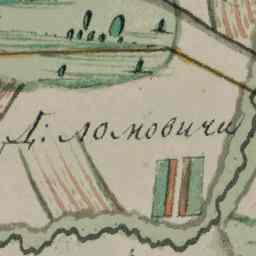 Д: ломовичи